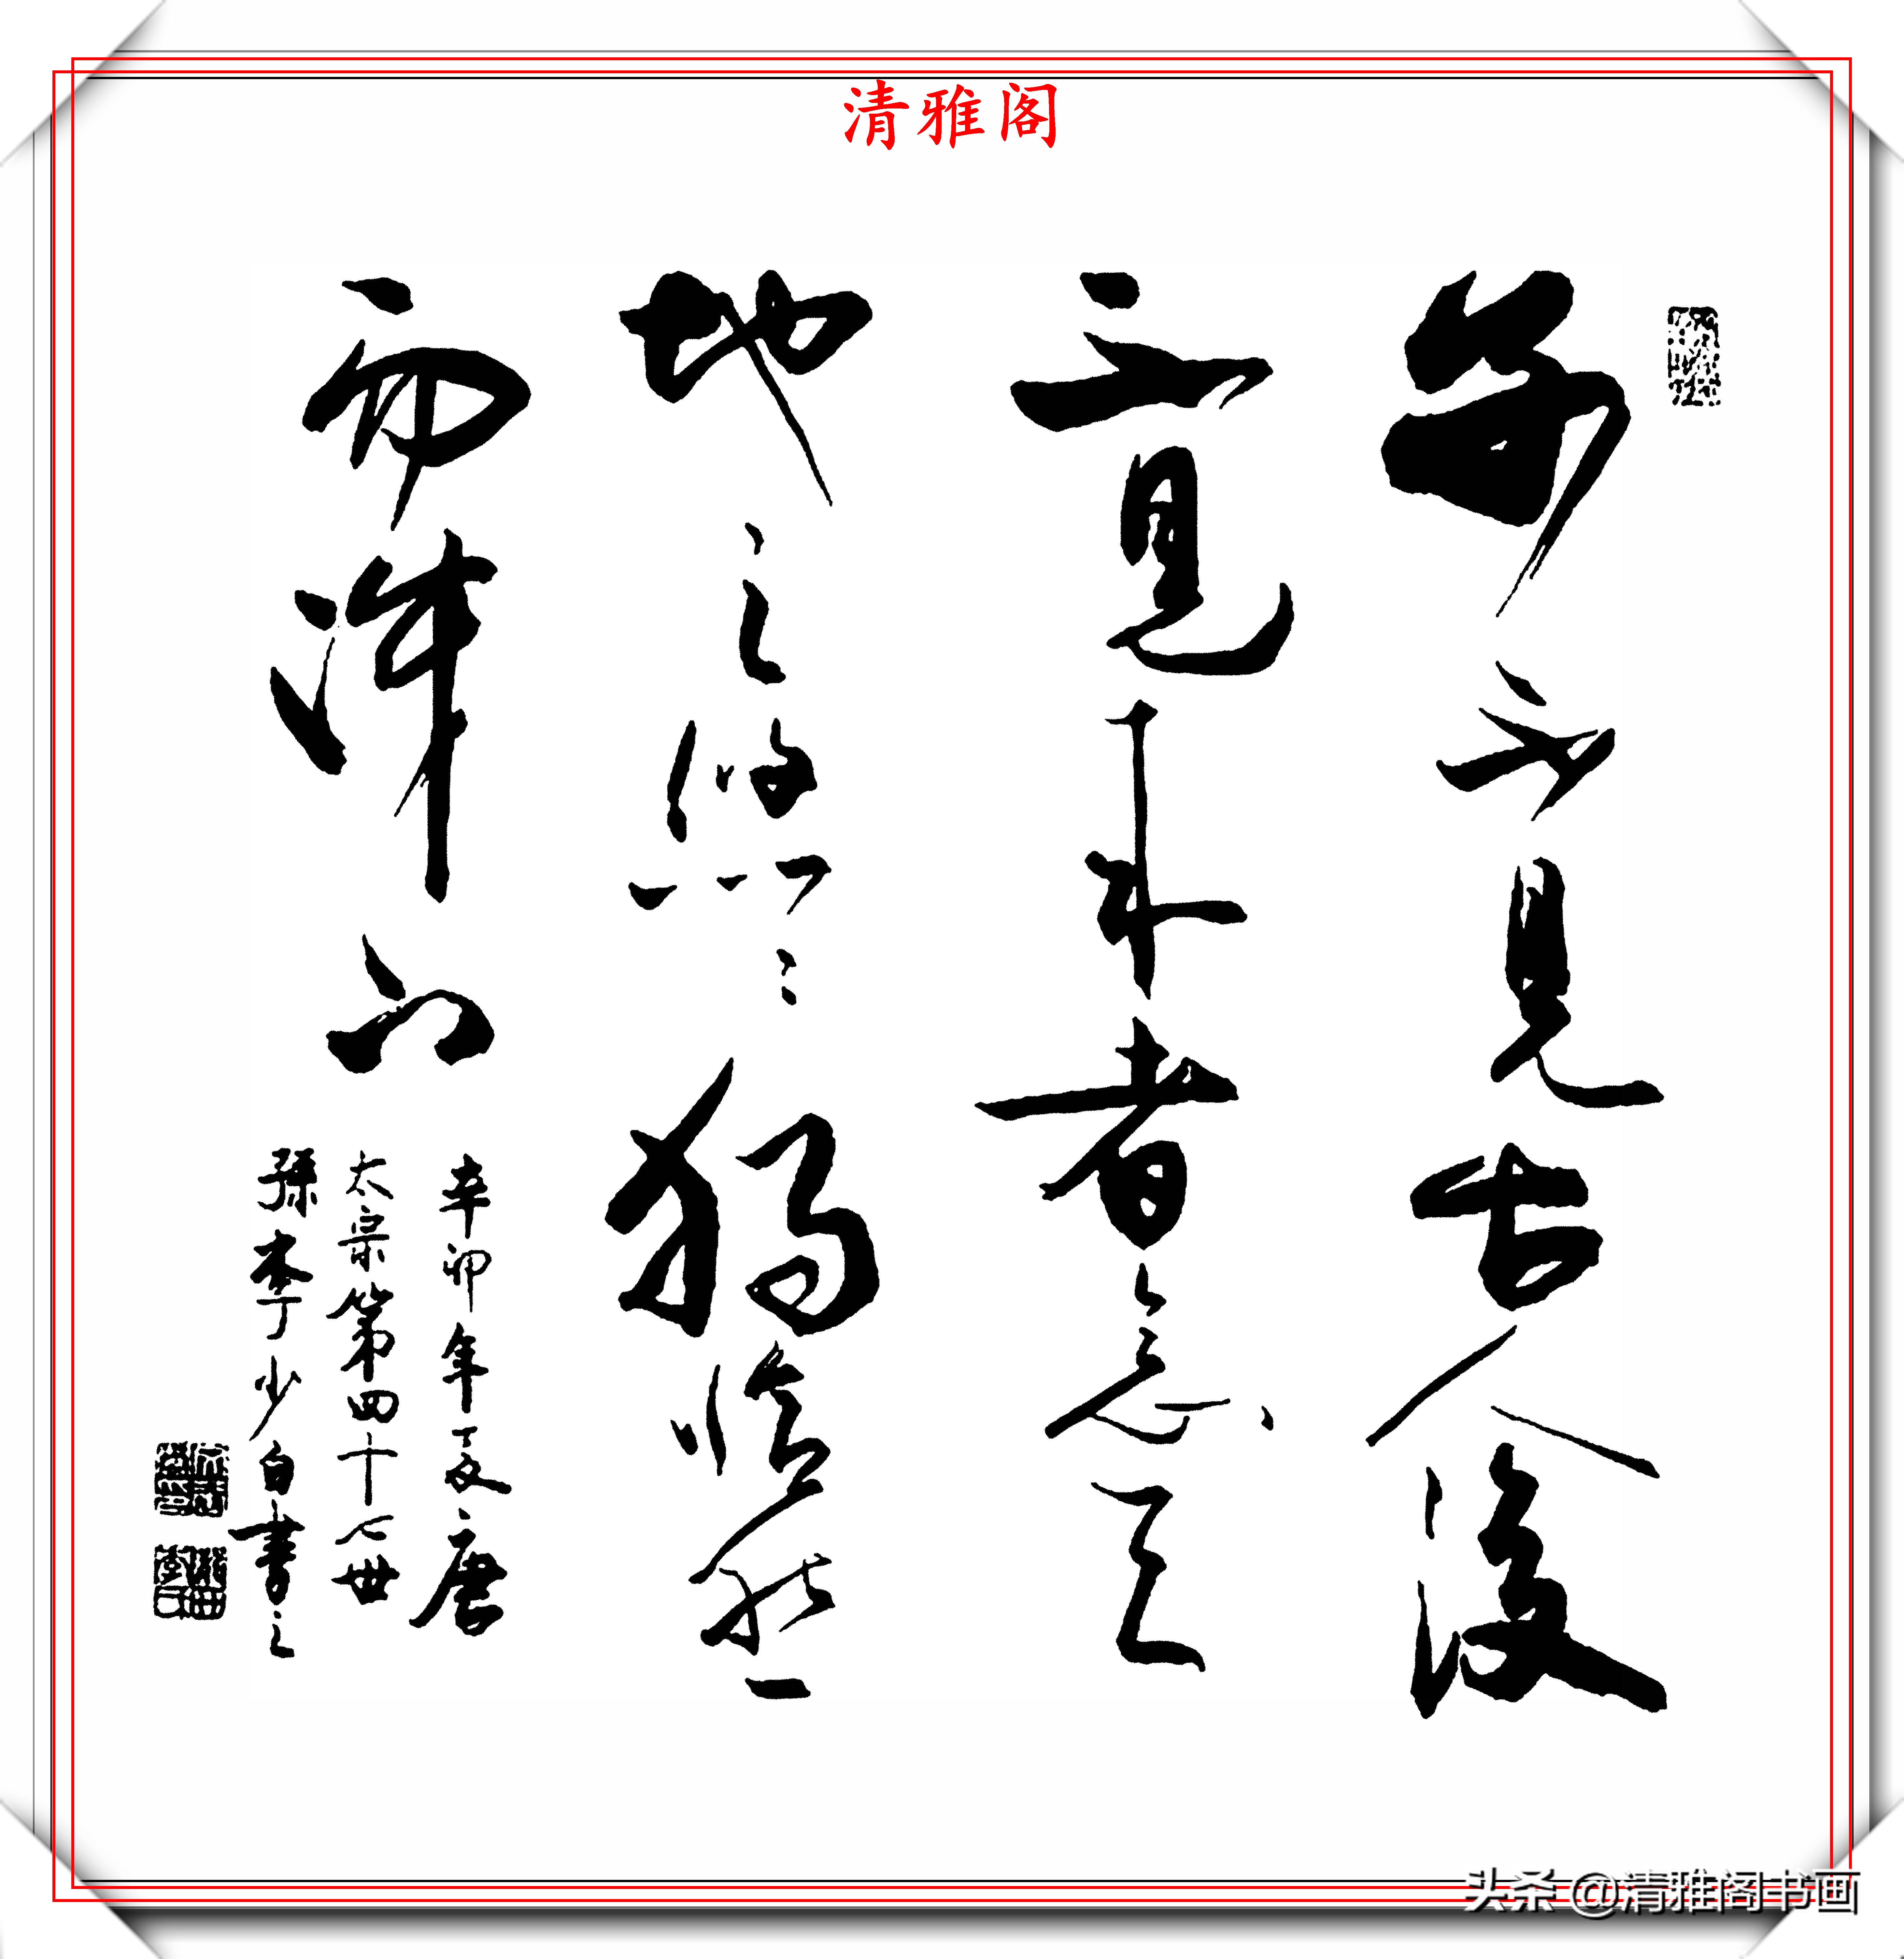 清雅阁
前不見古人後
不見來者念天
地之悠々獨愴然
而涕下
辛卯年夏唐
太宗第四十世
孫李少白書之
头条 @清雅阁书画